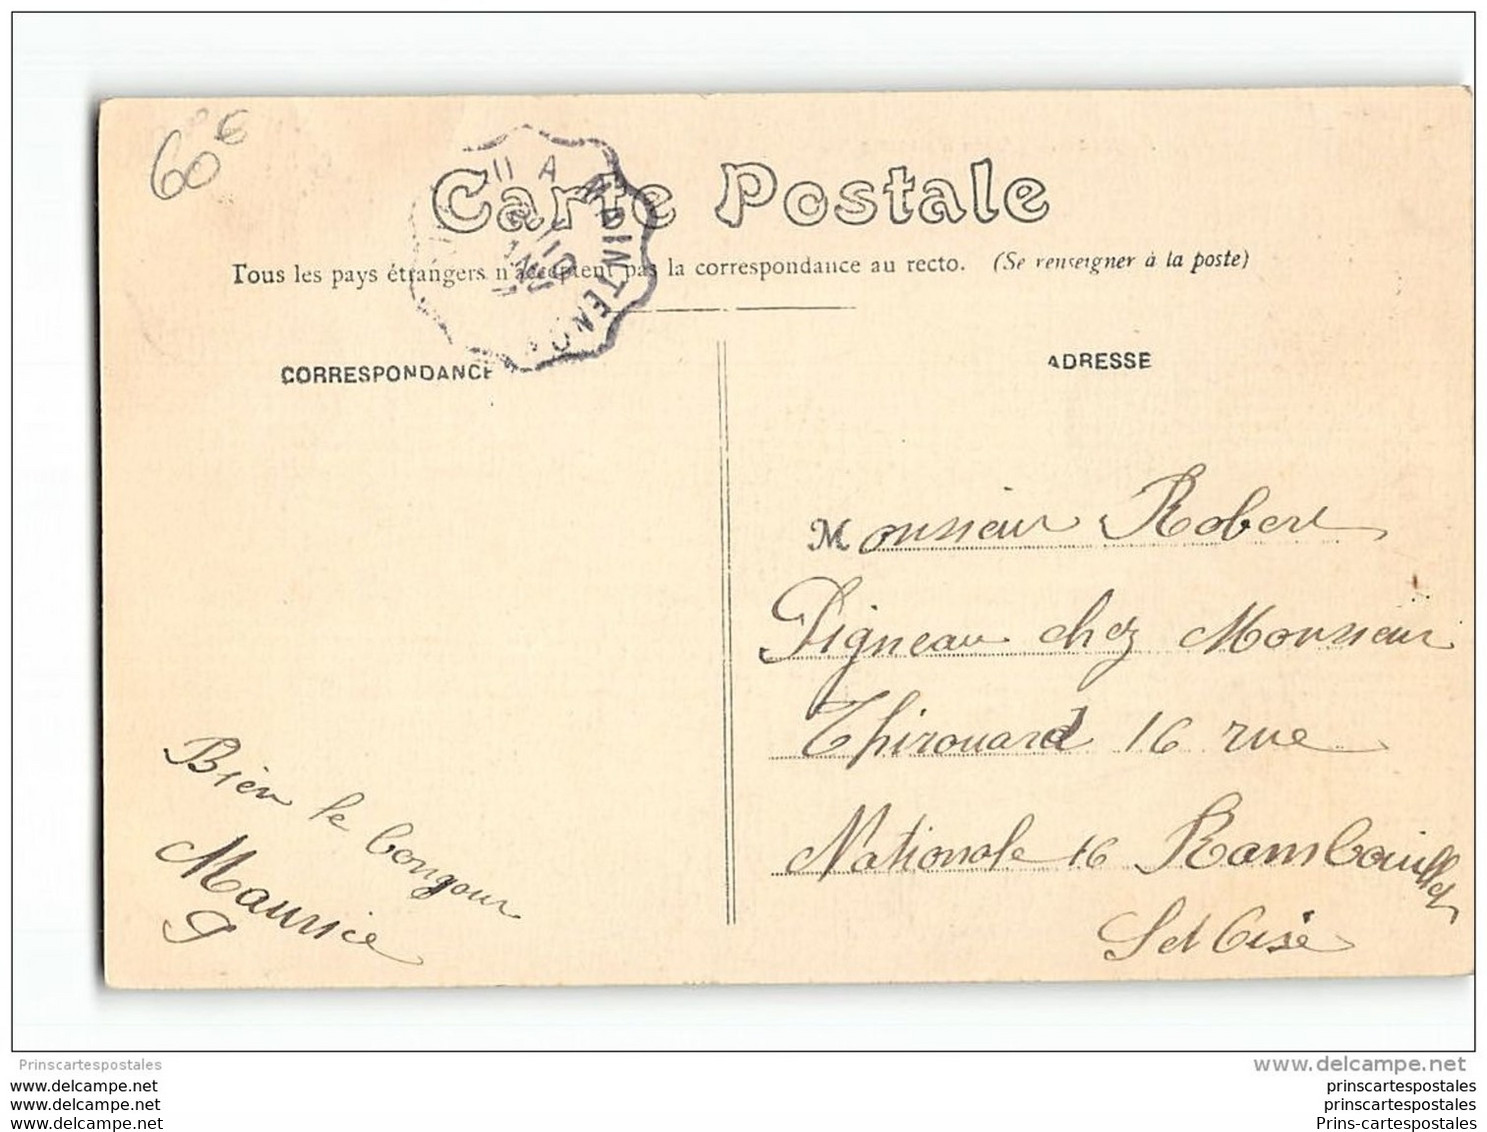 60€
Carte Postale
Tous les pays étrangers n'acceptent pas la correspondance au recto. (Se renseigner à la poste)
A MAINTENON
CORRESPONDANCE
ADRESSE
Monsieur Robert
Pigneau chez Monsieur
Thirouard 16 rue
Nationale 16 Rambouillet
S et Oise
Bien le bongour
Maurice
P
Prinscartespostales
www.delcampe.net
www.delcampe.net
www.delcampe.net
www.delcampe.net
prinscartespostales
prinscartespostales
Prins-cartespostales